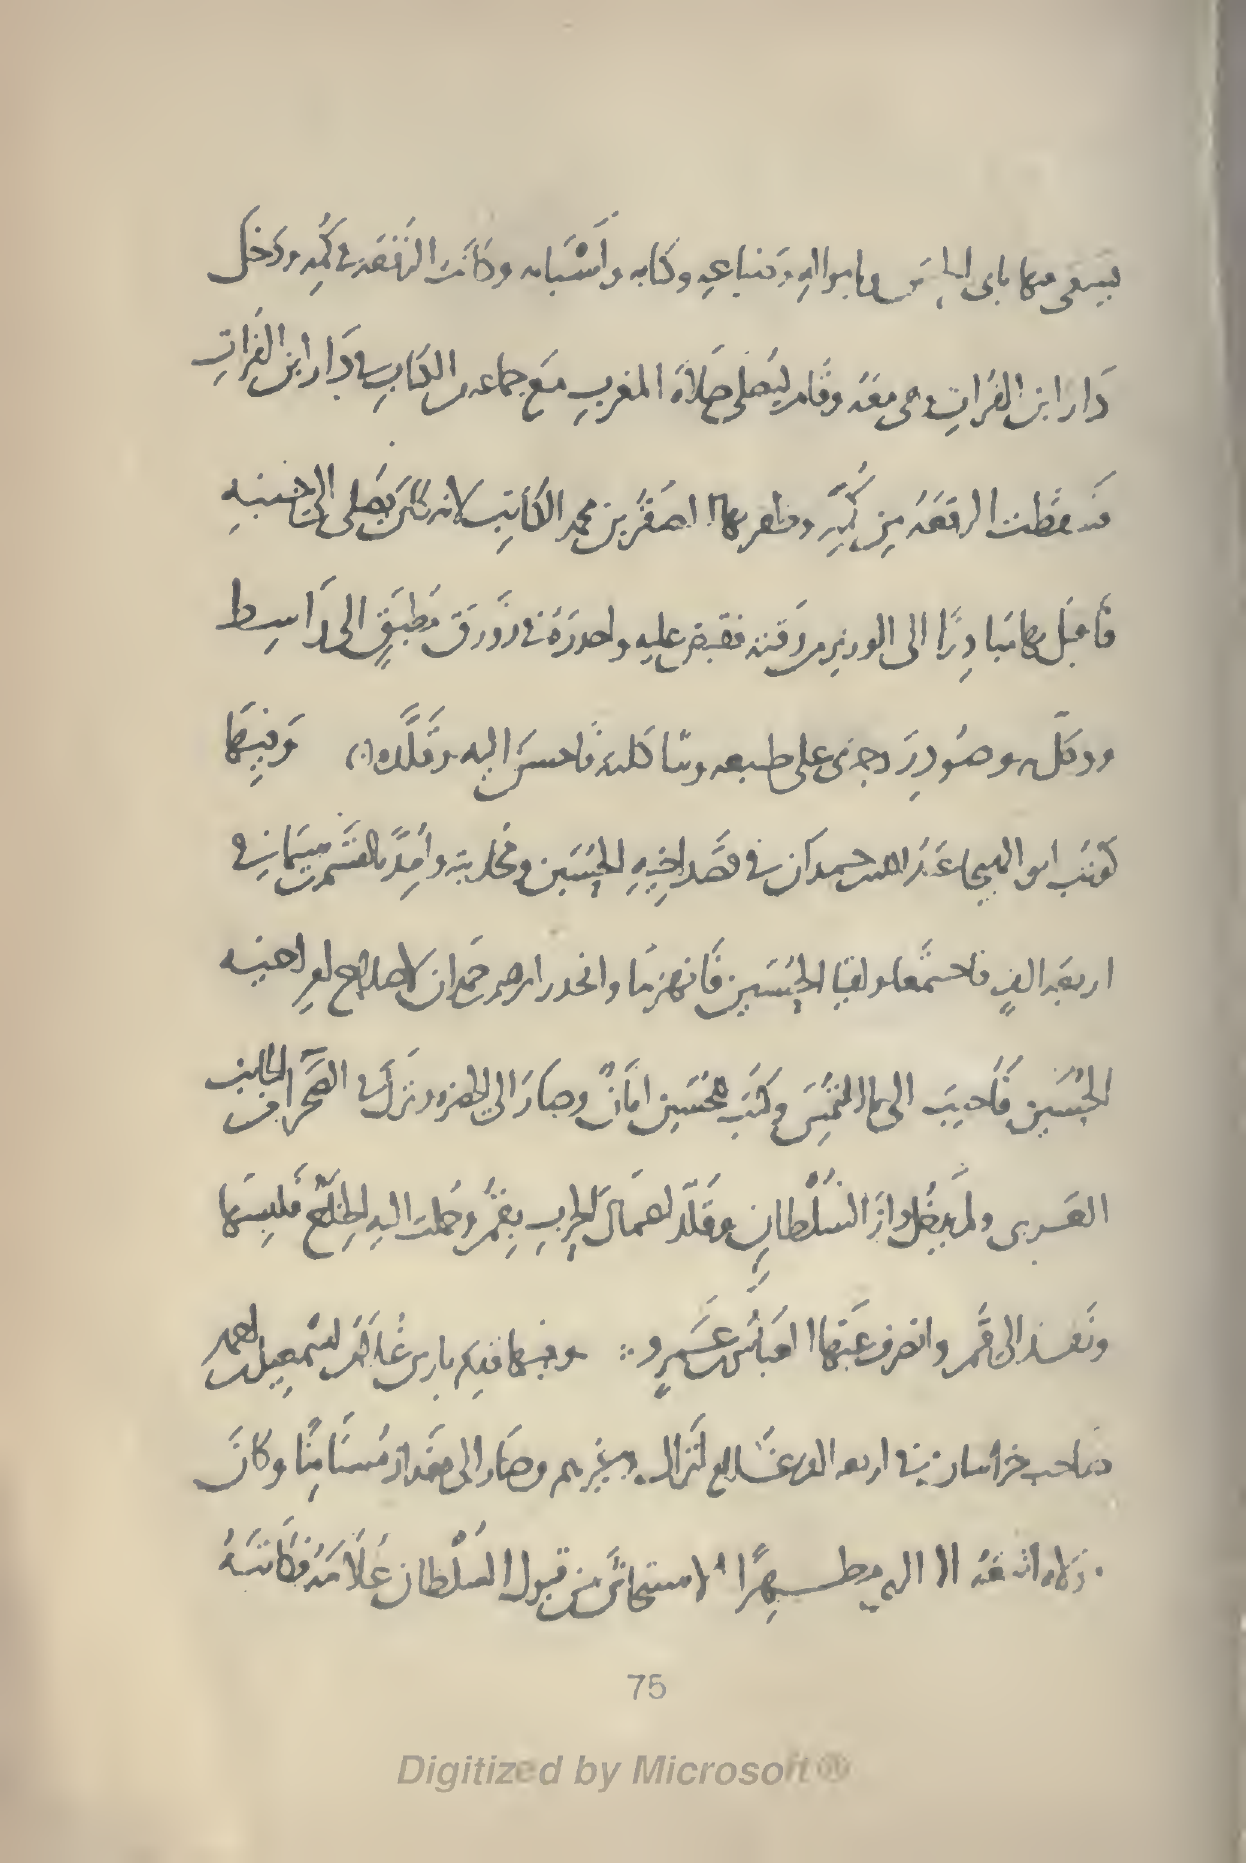 يسعى فيها بابى الحسن وباموالهِ وضياعهِ وكتابه وأَسْبَابه وكَانَت الرُّقْعَة فى كُمِّهِ ودَخَل
دَار ابن الفُراتِ وهى معَهُ وقَام ليُصَلى صَلَاةَ المغربِ مَع جماعه من الكُتابِ فى دَار ابن الفُراتِ
فَسقَطت الرقعَهُ مِن كُمِّهِ وظفر بها الصقْر بن محمد الكَاتِب لانه كان يُصلى الى جنبهِ
فَأَقبَل بها مُبَادِرًا الى الوزير من وَقته فقبض عليهِ واحدرَهُ فى زَورَق مُطبَقٍ الى وَاسِط
ووكّل به وصُودِرَ وجرى على طبعه فاحسَن اليه وقَلَّده وَفِيهَا
كُوتبَ ابو الهيجا عَبْد الله بن حمدان فى قصْد اخِيهِ الحُسَين ومُحاربته وأُمِدَّ بالقاسم بن سيما فى
اربعَه الفٍ فاجتمعَا ولقيا الحُسَين فَانهزمَا وانحدر ابرهيم بن حَمدان لاصلاح امرِ اخيه
الحُسَين فَأُجيبَ الى ما التمسَ وكُتبَ للحُسَين امَانٌ وصَارَ الى الحضره ونزلَ فى الصَحْرا من الجَانب
الغَربى ولم يدخُل دارَ السُلْطانِ وقُلّد اعمالَ الحربِ بقُمّ وحُملت اليه الخِلَع فلبسَها
ونَفذ الى قُمّ وانصرف عَنهَا العَبَّاسُ بن عَمرٍو ∴ وفيها قدِم بارس غُلَام اسْمعيل بن احمد
صَاحب خراسان فى اربعه الف غُلام اتْراك وغَيْرهم وصَار الى بغداد مُستَامنًا وكانَ
مولاه السُلْطان غُلَامَهُ فكَاتبَهُ